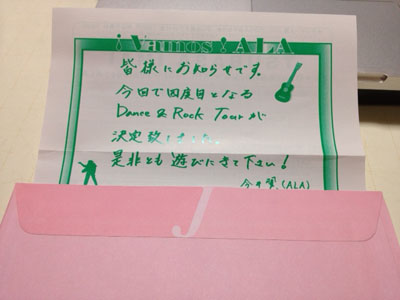 ¡Vamos! ALA
皆様にお知らせです。
今回で四度目となる
Dance & Rock Tourが
決定致しました。
是非とも遊びにきて下さい!
(ALA)
J